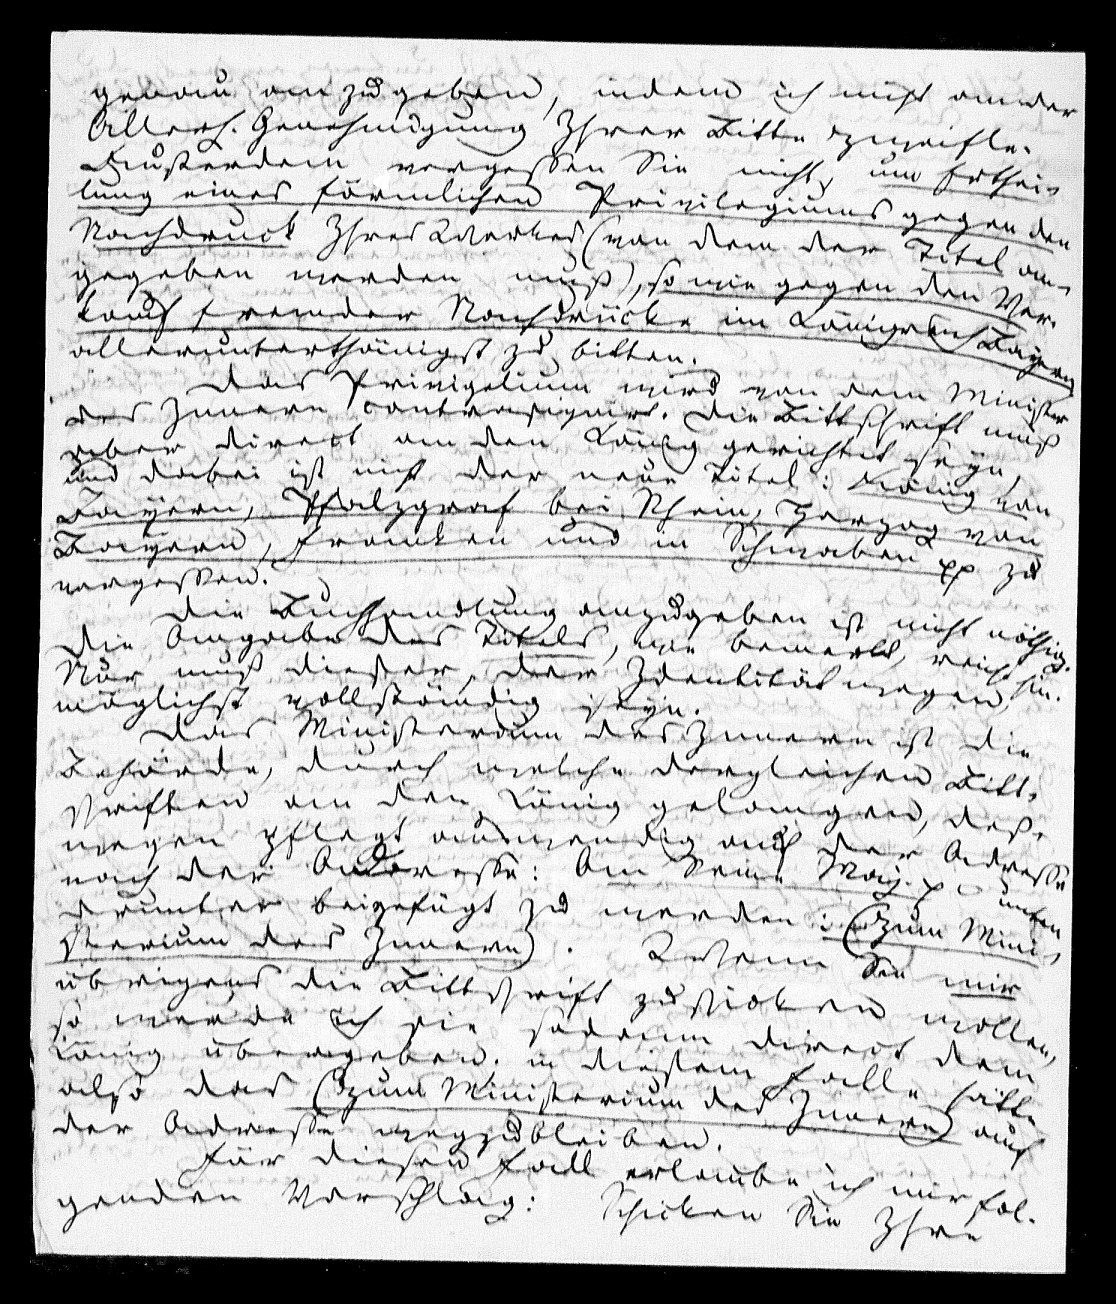 genau anzugeben, indem ich nicht an der
Allerh. Genehmigung Ihrer Bitte zweifle.
Ausserdem vergessen Sie nicht, um Erthei-
lung eines förmlichen Privilegiums gegen den
Nachdruck Ihres Werkes (von dem der Titel an-
gegeben werden muß), so wie gegen den Ver-
kauf fremder Nachdrücke im Königreich Bayern
allerunterthänigst zu bitten.
Das Privigelium wird von dem Minister
des Innern contrasignirt. Die Bittschrift muß
aber direct an den König gerichtet seyn
und dabei ist nicht der neue Titel: König von
Bayern, Pfalzgraf bei Rhein, Herzog von
Bayern, Franken und in Schwaben pp zu
vergessen.
Die Buchhandlung anzugeben ist nicht nöthig.
Die Angabe des Titels, wie bemerkt, reicht hin.
Nur muß dieser, der Identität wegen,
möglichst vollständig seyn.
Das Ministerium des Innern ist die
Behörde, durch welche dergleichen Bitt-
schriften an den König gelangen, deß-
wegen pflegt auswendig auf der Adresse
nach der Addresse: An Seine Maj. p unten
drunter beigefügt zu werden: (zum Mini-
sterium des Innern). Sie mir
übrigens die Bittschrift zuschicken wollen,
so werde ich sie sodann direct dem
König übergeben. in diesem Falle hätte
also das (zum Ministerium des Innern) auf
der Adresse wegzubleiben.
Für diesen Fall erlaube ich mir fol-
genden Vorschlag: Schicken Sie Ihre